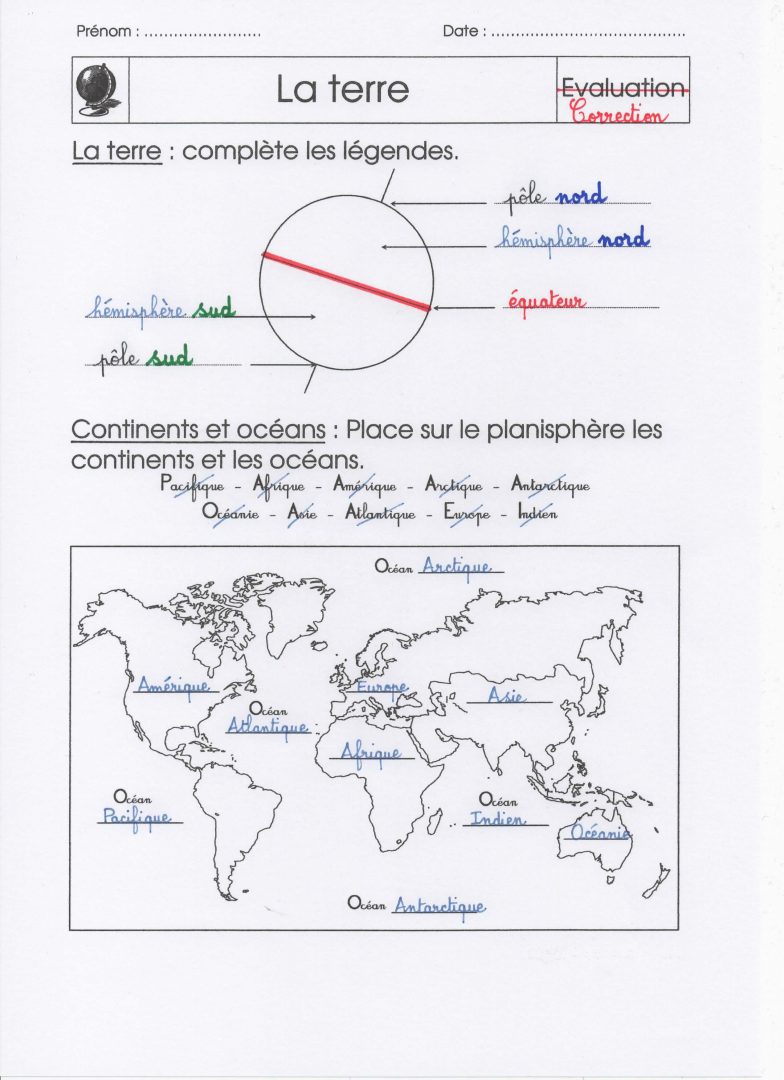 Prénom : ........................ Date : .......................................
La terre
Evaluation
Correction
La terre : complète les légendes.
pôle nord
hémisphère nord
équateur
hémisphère sud
pôle sud
Continents et océans : Place sur le planisphère les
continents et les océans.
Pacifique - Afrique - Amérique - Arctique - Antarctique
Océanie - Asie - Atlantique - Europe - Indien
Océan Arctique
Amérique
Europe
Asie
Océan
Atlantique
Afrique
Océan
Pacifique
Océan
Indien
Océanie
Océan Antarctique